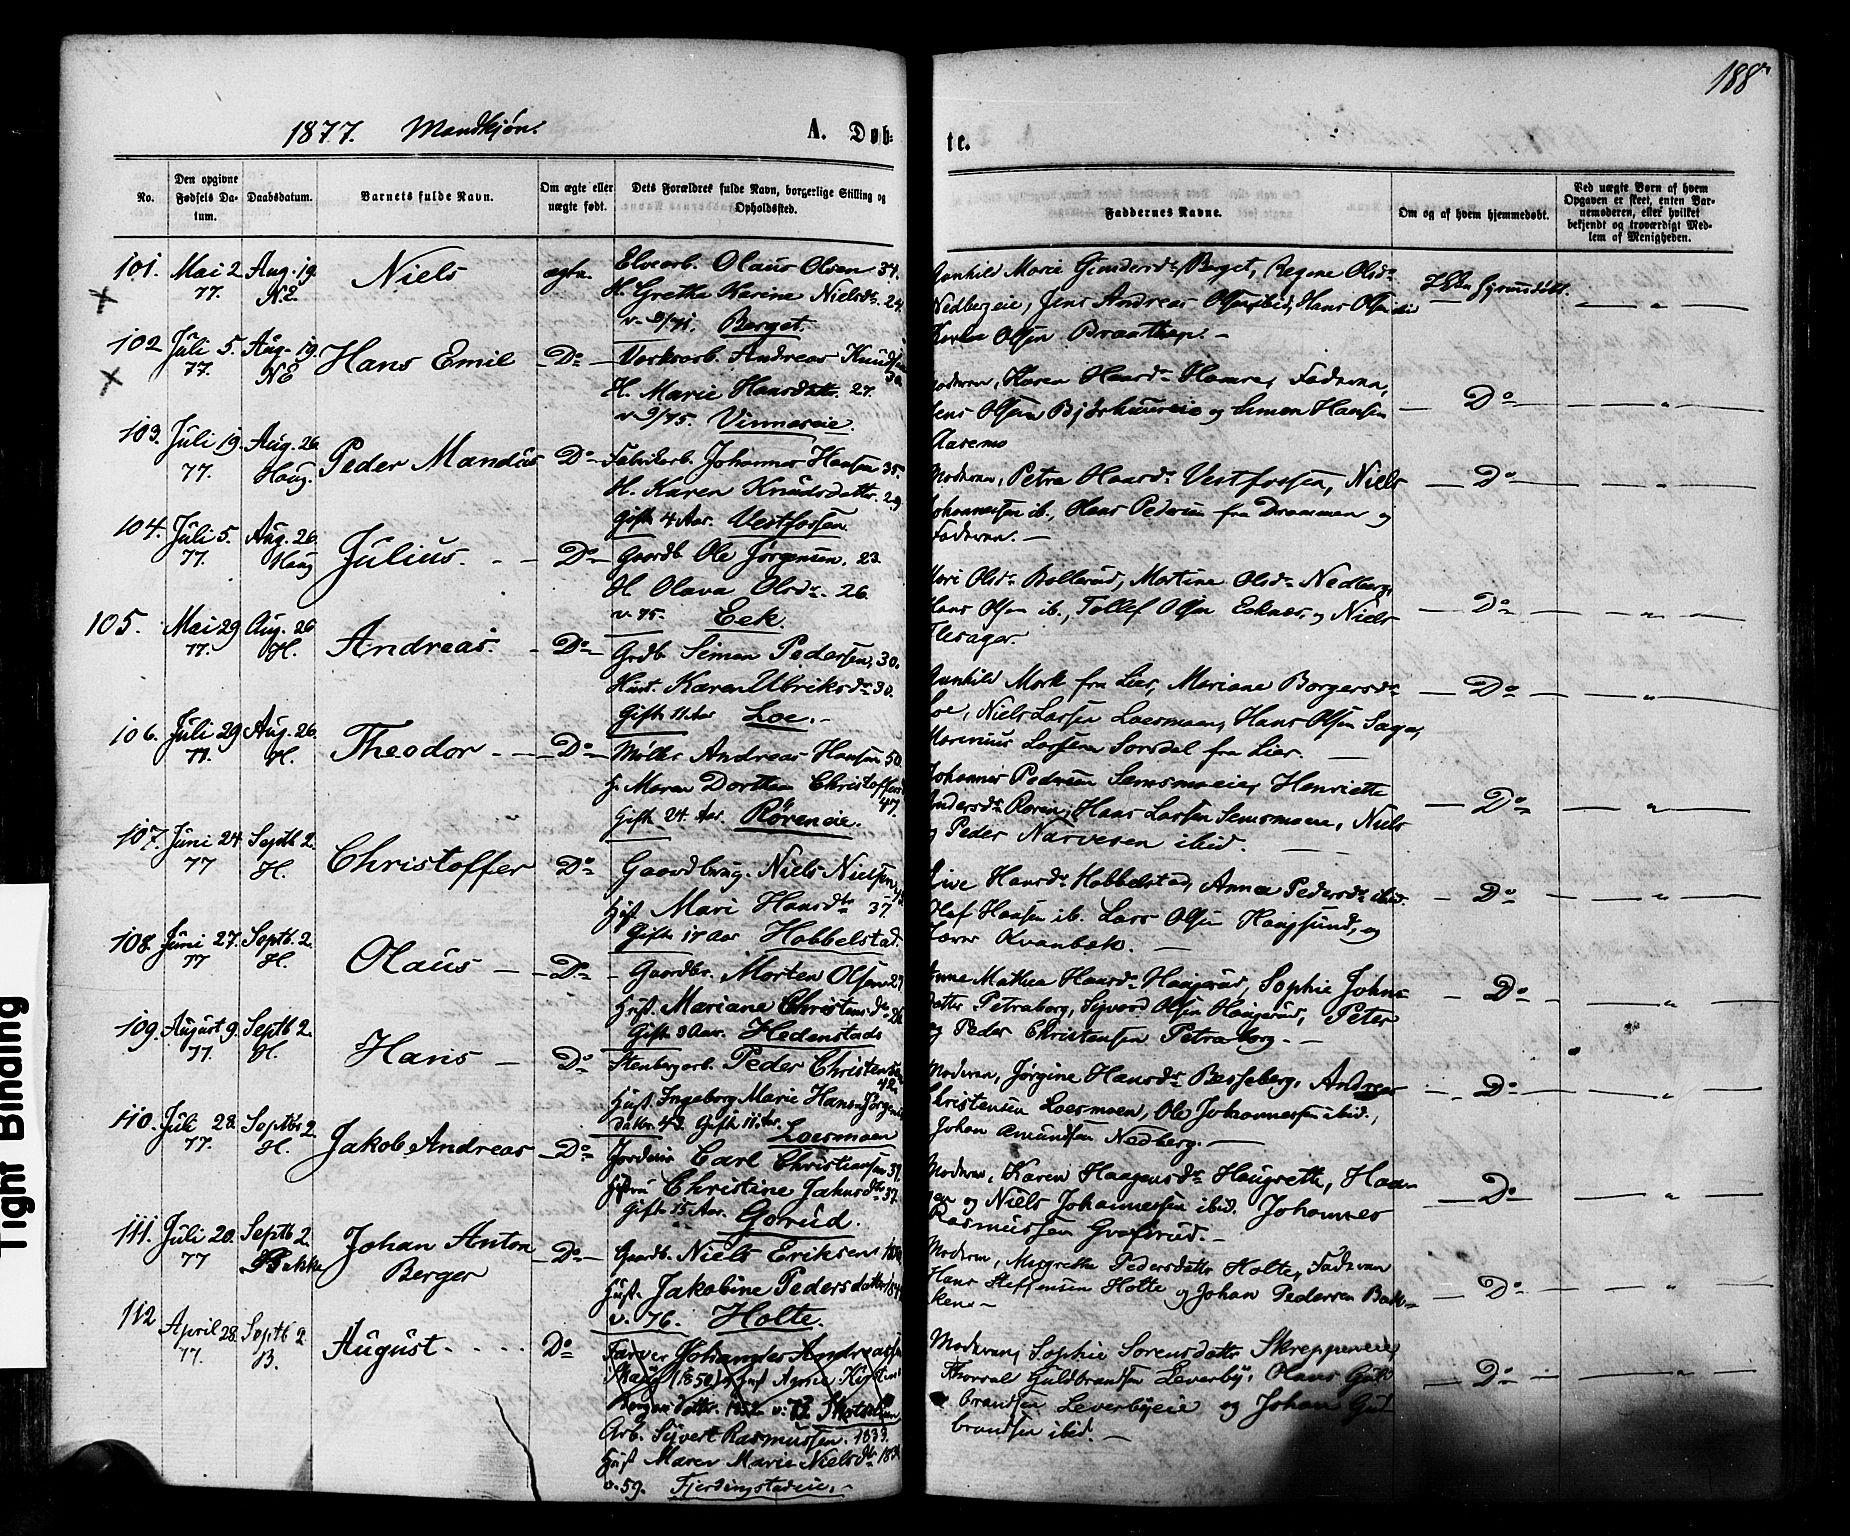 188
1877. Mandkjøn.
A. Døb-
te.
No.
Den opgivne Fødsels Datum.
Daabsdatum.
Barnets fulde Navn.
Om ægte eller uægte født.
Dets Forældres fulde Navn, borgerlige Stilling og Opholdssted.
Faddernes Navne.
Om og af hvem hjemmedøbt.
Ved uægte Børn af hvem Opgaven er skeet, enten Barnemoderen, eller hvilket bekjendt og troværdigt Medlem af Menigheden.
101. Mai 2 77. Aug. 19. N.E. Niels ægte.
Elvearb. Olaus Olsen 34.
H. Grethe Karine Nielsdr. 24.
Berget.
Gunhild Marie Gundersdr Berget, Regine Olsdr
Nedbergeie, Jens Andreas
Olsen Braathen. -
102 Juli 5. 77. Aug. 19. NE Hans Emil Do
Værksarb. Andreas Knudsen
H. Marie Hansdatter. 27.
v. 9/75. Vinnæseie.
Moderen, Karen Hansdr Hamre, Faderen,
Jens Olsen og Simon Hansen
Aasemo
Do
103. Juli 19. 77. Aug. 26. Haug. Peder Mandius Do
Fabrikarb. Johannes Hansen 35.
H. Karen Knudsdatter. 29
Gifte 4 Aar. Vestfossen.
Moderen, Petra Hansdr Vestfossen, Niels
Johannessen ib., Hans Pedersen fra Drammen og
Faderen. -
Do
104. Juli 5. 77. Aug. 26. Haug Julius. Do
Gaardb. Ole Jørgensen. 23.
H Olava Olsdr. 26.
v. 75. Eek.
Mari Olsdr Bollerud, Martine Olsdr Nedberg,
Hans Olsen ib., Tollef Olsen Eeknæs, og Niels
Flesager.
Do
105. Mai 29 77. Aug. 26 H. Andreas. Do
Grdb. Simen Pedersen, 30.
Hust. Karen Ulriksdr 30.
Gifte 11 Aar Loe. -
Gunhild Mork fra Lier, Mariane Borgersdr
Loe, Niels Larsen Loesmoen, Hans Olsen Sager,
Marenius Larsen Sørsdal fra Lier.
Do
106. Juli 29 77. Aug. 26. H. Theodor Do
Møller Andreas Hansen 50.
H. Maren Dorthea Christoffersdr
47.
Gifte 24. Aar. Røreneie.
Johannes Pedersen Semsmoeie, Henriette
Andersdr Røren, Hans Larsen Semsmoen, Niels
og Peder Narvesen ibid.
Do
107. Juni 24. 77 Septb 2. H. Christoffer Do
Gaardbrug. Niels Nielsen
Hust Mari Hansdtr 37
Gifte 17 Aar Hobbelstad.
Live Hansdr Hobbelstad, Anne Pedersdr ibid.
Olaf Hansen ib. Lars Olsen Haugsund, og
Kvanbæk. -
Do
108. Juni 27. 77 Septb. 2. H. Olaus Do
Gaardbr. Morten Olsen 27
Hust. Mariane Christensdr 26
Gifte 3 Aar. Hedenstads
Anne Mathea Hansdr Haugerud, Sophie Johns-
datter Petraborg, Syvord Olsen Haugerud, Peter
og Peder Christensen Petraborg. -
Do
109. August 9. 77. Septb 2. H. Hans Do
Stenbergarb. Peder Christensen
42
Hust. Ingeborg Marie Hans-Jørgens
datter 43. Gifte 11 Aar. Loesmoen
Moderen, Jørgine Hansdr Besseberg, Andreas
Christensen Loesmoen, Ole Johannessen ibid.,
Johan Amundsen Nedberg. -
Do
110. Juli 28. 77. Septbr 2. H. Jakob Andreas Do
Carl Christiansen 39.
Christine Jahnsdtr 37.
Gifte 15 Aar. Gorud.
Moderen, Karen Haagensdr Haugrette, Haa-
gen og Niels Johannessen ibid. Johannes
Rasmussen Grøsrud. -
Do
111. Juli 20. 77 Septb 2 Bakke Johan Anton Berger Do
Gaardb. Niels Eriksen
Hust. Jakobine Pedersdatter
v. 76. Holte.
Moderen, Margrethe Pedersdatter Holte, Faderen
Hans Steffensen Holte og Johan Pedersen Bak-
ken. -
Do
112 April 28. 77. Septb 2 B. August Do
Farver Johannes Andreassen
Skaug (1850) & Hust
datter. 1852 v. 72 Skotselven
Arb. Syvert Rasmussen. 1833.
Hust Maren Marie Nielsdr
v. 59. Fjerdingstadeie. -
Moderen, Sophie Sørensdatter Skreppeneie,
Thorval Guldbrandsen Leverby, Olaus Guld-
brandsen Leverbyeie og Johan Guld-
brandsen ibid. -
Do
Tight Binding